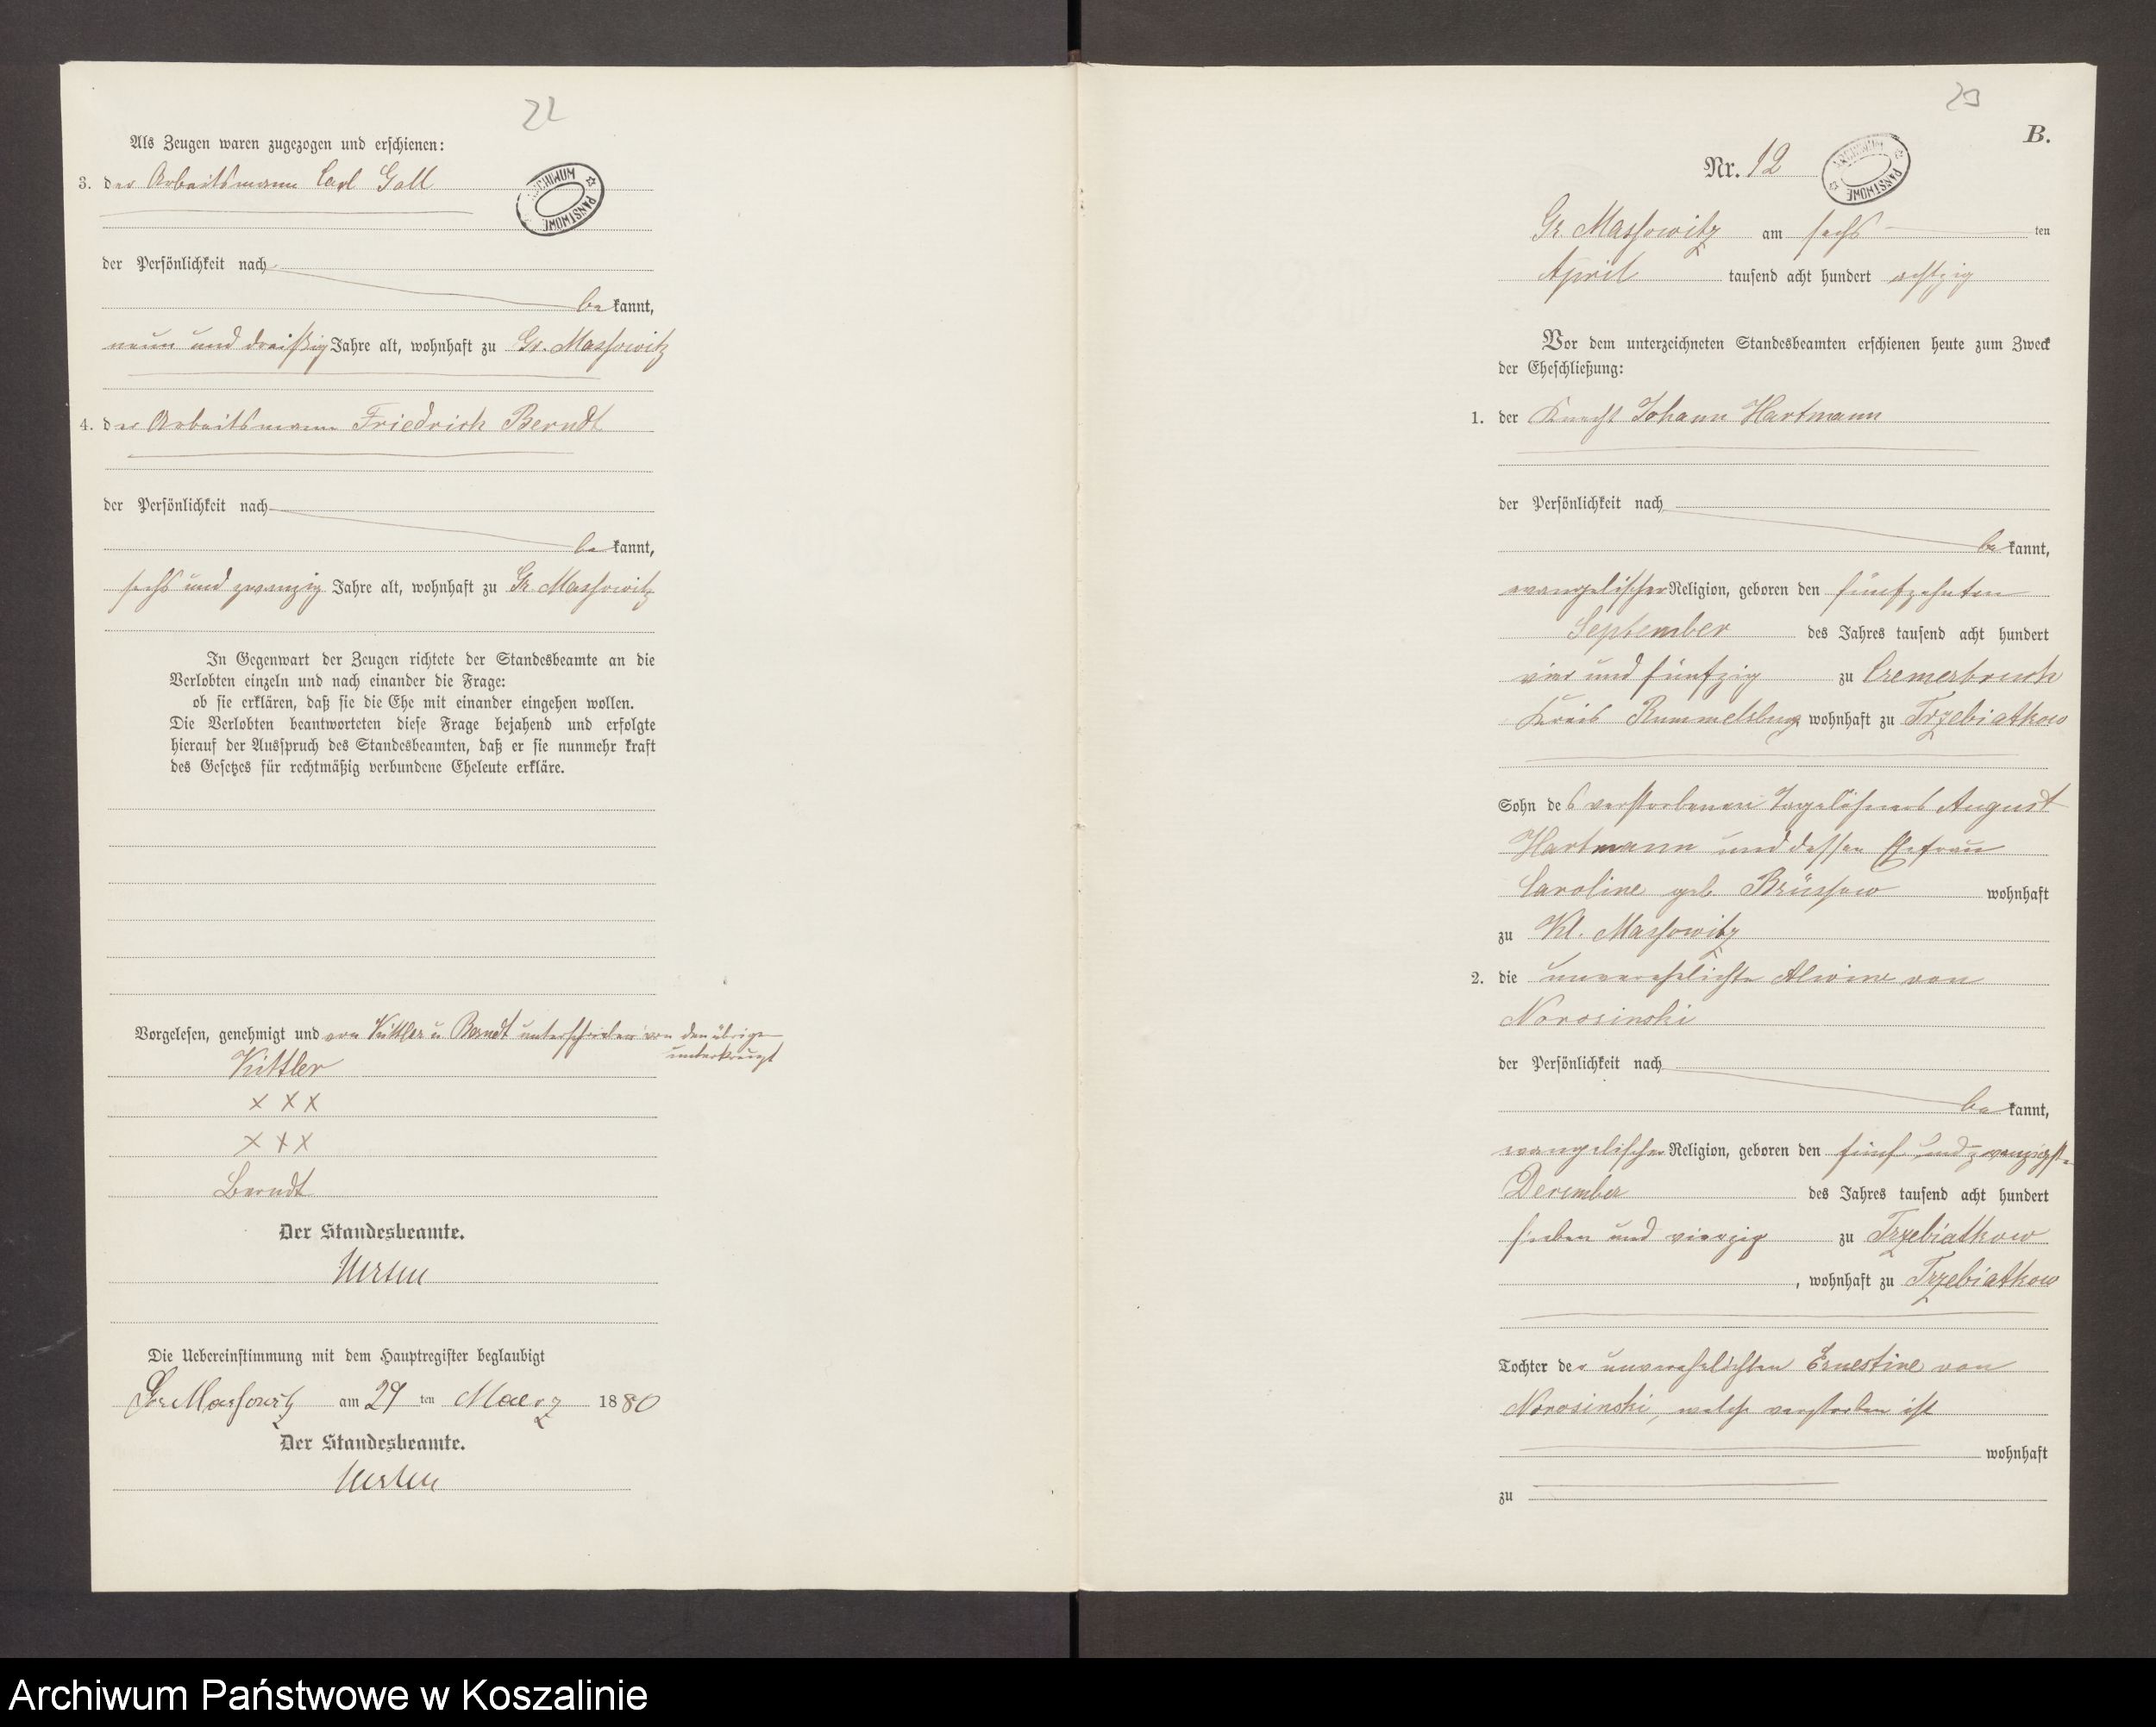 22
Als Zeugen waren zugezogen und erschienen:
3. der Arbeitsmann Carl Goll
ARCHIWUM PAŃSTWOWE
der Persönlichkeit nach
be kannt,
neun und dreißig Jahre alt, wohnhaft zu Gr. Massowitz
4. der Arbeitsmann Friedrich Berndt
der Persönlichkeit nach
be kannt,
sechs und zwanzig Jahre alt, wohnhaft zu Gr. Massowitz
In Gegenwart der Zeugen richtete der Standesbeamte an die
Verlobten einzeln und nach einander die Frage:
ob sie erklären, daß sie die Ehe mit einander eingehen wollen.
Die Verlobten beantworteten diese Frage bejahend und erfolgte
hierauf der Ausspruch des Standesbeamten, daß er sie nunmehr kraft
des Gesetzes für rechtmäßig verbundene Eheleute erkläre.
Vorgelesen, genehmigt und von Kuttler u Berndt unterschrieben von den übrigen
unterkreuzt
Kuttler
x x x
x x x
Berndt
Der Standesbeamte.
Die Uebereinstimmung mit dem Hauptregister beglaubigt
Gr. Massowitz am 29 ten Maerz 1880
Der Standesbeamte.
23
B.
Nr. 12
ARCHIWUM PAŃSTWOWE
Gr. Massowitz am sechs ten
April tausend acht hundert achtzig
Vor dem unterzeichneten Standesbeamten erschienen heute zum Zweck
der Eheschließung:
1. der Knecht Johann Hartmann
der Persönlichkeit nach
be kannt,
evangelischer Religion, geboren den fünfzehnten
September des Jahres tausend acht hundert
vier und fünfzig zu Cremerbruch
Kreis Rummelsburg wohnhaft zu Trzebiatkow
Sohn des verstorbenen Tagelöhners August
Hartmann und dessen Ehefrau
Caroline geb Brüssow wohnhaft
zu Kl. Massowitz
2. die unverehelichte Alwine von
Norosinski
der Persönlichkeit nach
be kannt,
evangelischer Religion, geboren den fünf und zwanzigsten
December des Jahres tausend acht hundert
sieben und vierzig zu Trzebiatkow
, wohnhaft zu Trzebiatkow
Tochter der unverehelichten Ernestine von
Norosinski, welche verstorben ist
wohnhaft
zu
Archiwum Państwowe w Koszalinie